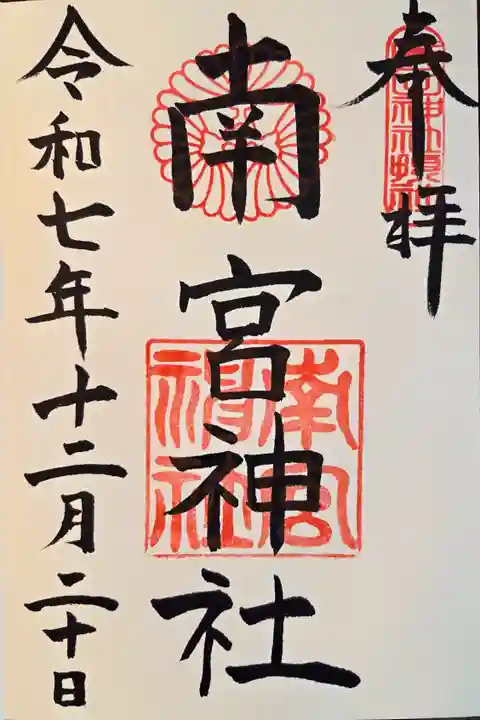 奉拝
南宮神社
南宮
神社
令和七年十二月二十日